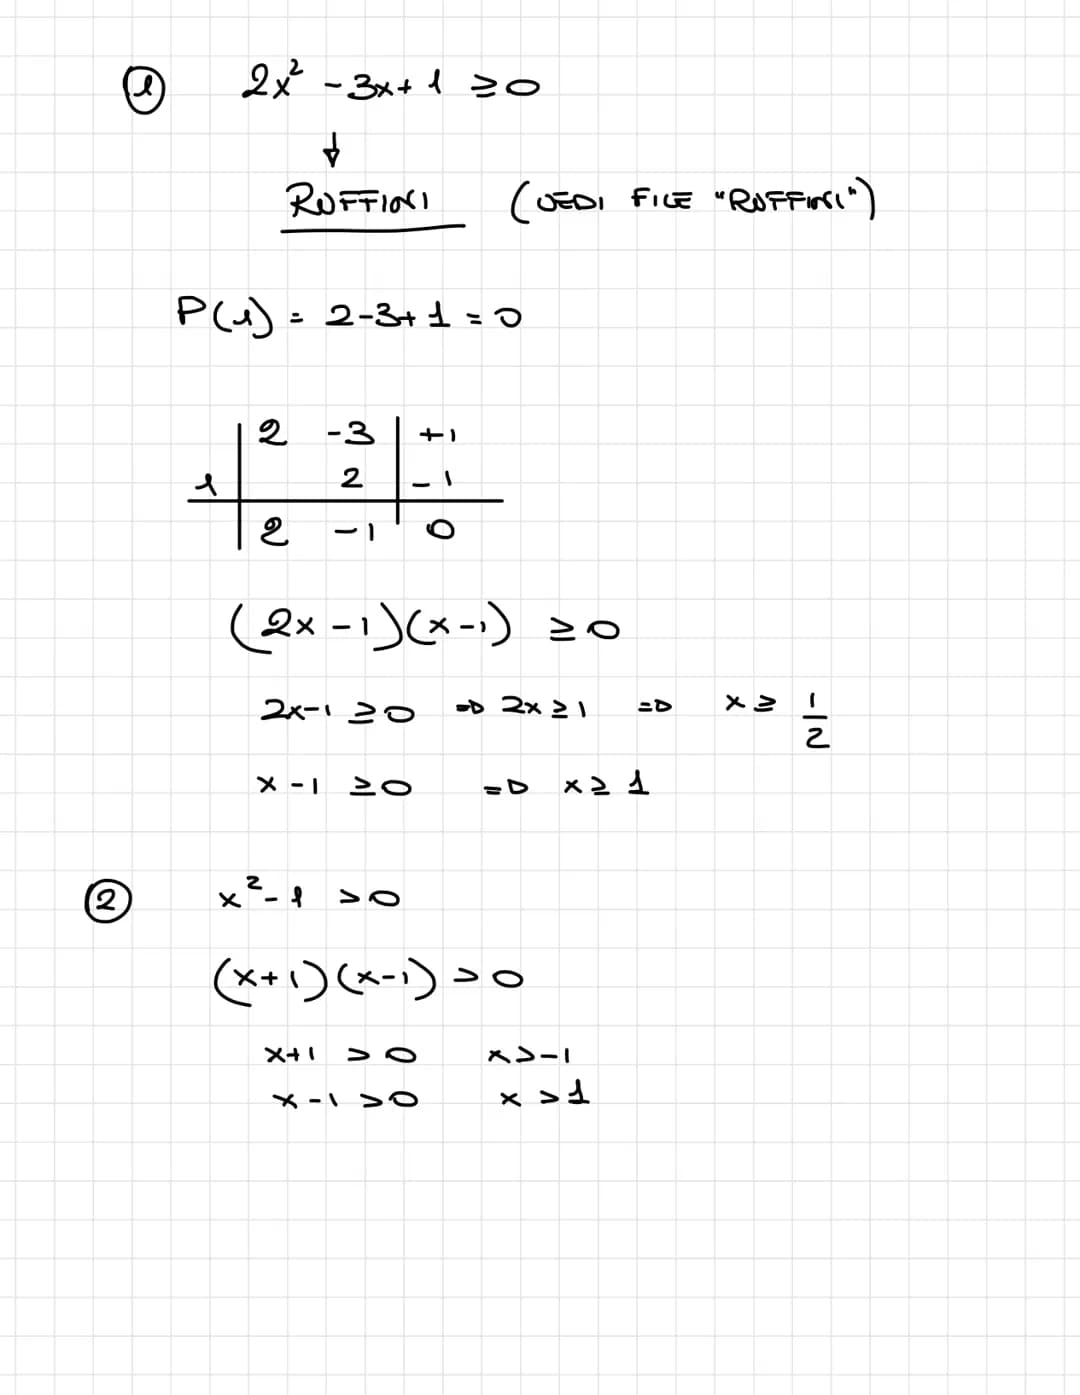 ① 2x² - 3x + 1 ≥ 0
↓
RUFFINI (VEDI FILE "RUFFINI")
P(1) = 2-3+1 = 0
2 -3 +1
1 2 -1
2 -1 0
(2x-1)(x-1) ≥ 0
2x-1 ≥ 0 => 2x ≥ 1 => x ≥ 1/2
x-1 ≥ 0 => x ≥ 1
② x² - 1 > 0
(x+1)(x-1) > 0
x+1 > 0 x > -1
x-1 > 0 x > 1